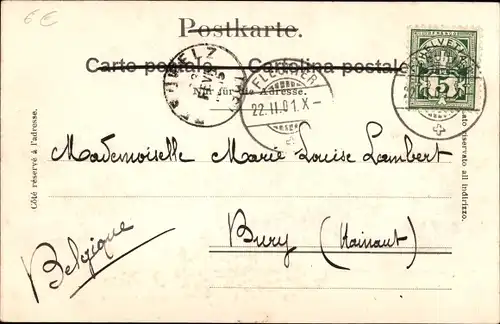 6 €
Postkarte.
Carte postale. Cartolina postale.
Nur für die Adresse.
22.II.01.X-
HELVETIA
5
Côté réservé à l'adresse.
Mademoiselle Marie Louise Lambert
Bury (Hainaut)
Belgique
lato riservato all indirizzo.